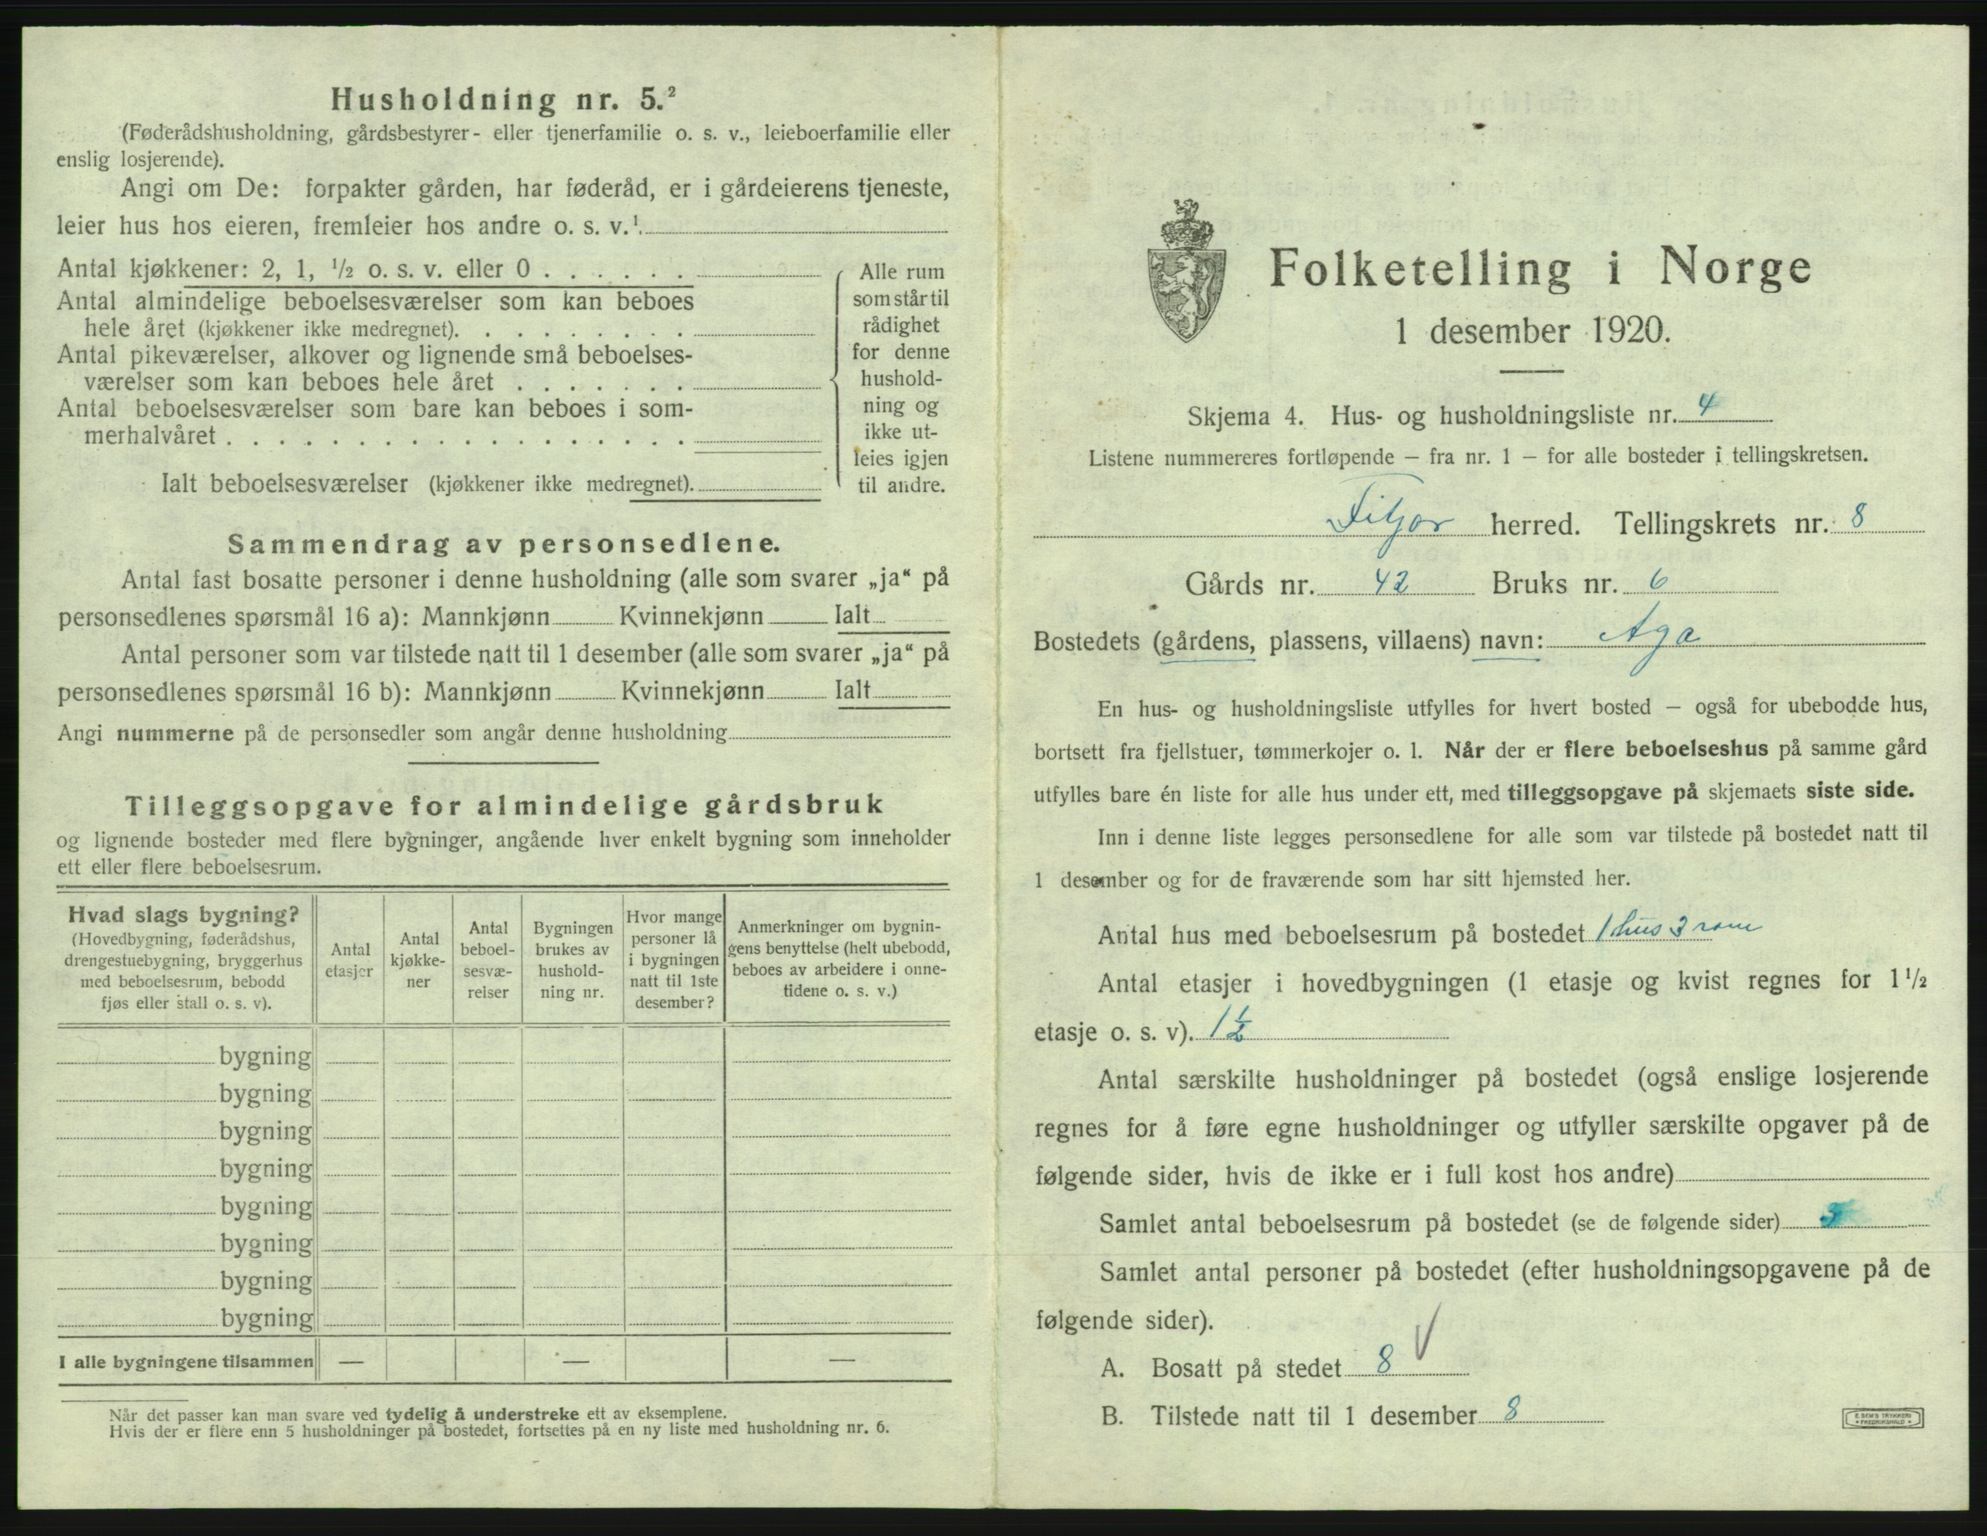 Husholdning nr. 5.²
(Føderådshusholdning, gårdsbestyrer- eller tjenerfamilie o. s. v., leieboerfamilie eller
enslig losjerende).
Angi om De: forpakter gården, har føderåd, er i gårdeierens tjeneste,
leier hus hos eieren, fremleier hos andre o. s. v.¹
Antal kjøkkener: 2, 1, ½ o. s. v. eller 0 . . . . . .
Antal almindelige beboelsesværelser som kan beboes
hele året (kjøkkener ikke medregnet). . . . . . . . .
Antal pikeværelser, alkover og lignende små beboelses-
værelser som kan beboes hele året . . . . . . .
Antal beboelsesværelser som bare kan beboes i som-
merhalvåret . . . . . . . . . . . . . . . . . .
Ialt beboelsesværelser (kjøkkener ikke medregnet).
Alle rum
som står til
rådighet
for denne
hushold-
ning og
ikke ut-
leies igjen
til andre.
Sammendrag av personsedlene.
Antal fast bosatte personer i denne husholdning (alle som svarer „ja“ på
personsedlenes spørsmål 16 a): Mannkjønn Kvinnekjønn Ialt
Antal personer som var tilstede natt til 1 desember (alle som svarer „ja“ på
personsedlenes spørsmål 16 b): Mannkjønn Kvinnekjønn Ialt
Angi nummerne på de personsedler som angår denne husholdning
Tilleggsopgave for almindelige gårdsbruk
og lignende bosteder med flere bygninger, angående hver enkelt bygning som inneholder
ett eller flere beboelsesrum.
Hvad slags bygning?
(Hovedbygning, føderådshus,
drengestuebygning, bryggerhus
med beboelsesrum, bebodd
fjøs eller stall o. s. v).
Antal
etasjer
Antal
kjøkke-
ner
Antal
beboel-
sesvæ-
relser
Bygningen
brukes av
hushold-
ning nr.
Hvor mange
personer lå
i bygningen
natt til 1ste
desember?
Anmerkninger om bygnin-
gens benyttelse (helt ubebodd,
beboes av arbeidere i onne-
tidene o. s. v.)
bygning
bygning
bygning
bygning
bygning
bygning
bygning
bygning
I alle bygningene tilsammen — — —
Når det passer kan man svare ved tydelig å understreke ett av eksemplene.
Hvis der er flere enn 5 husholdninger på bostedet, fortsettes på en ny liste med husholdning nr. 6.
Folketelling i Norge
1 desember 1920.
Skjema 4. Hus- og husholdningsliste nr. 4
Listene nummereres fortløpende — fra nr. 1 — for alle bosteder i tellingskretsen.
Fitjar herred. Tellingskrets nr. 8
Gårds nr. 42 Bruks nr. 6
Bostedets (gårdens, plassens, villaens) navn: Aga
En hus- og husholdningsliste utfylles for hvert bosted — også for ubebodde hus,
bortsett fra fjellstuer, tømmerkojer o. l. Når der er flere beboelseshus på samme gård
utfylles bare én liste for alle hus under ett, med tilleggsopgave på skjemaets siste side.
Inn i denne liste legges personsedlene for alle som var tilstede på bostedet natt til
1 desember og for de fraværende som har sitt hjemsted her.
Antal hus med beboelsesrum på bostedet 1 hus 3 rom
Antal etasjer i hovedbygningen (1 etasje og kvist regnes for 1½
etasje o. s. v). 1½
Antal særskilte husholdninger på bostedet (også enslige losjerende
regnes for å føre egne husholdninger og utfyller særskilte opgaver på de
følgende sider, hvis de ikke er i full kost hos andre)
Samlet antal beboelsesrum på bostedet (se de følgende sider)
Samlet antal personer på bostedet (efter husholdningsopgavene på de
følgende sider).
A. Bosatt på stedet 8 √
B. Tilstede natt til 1 desember 8
E. SEM'S TRYKKERI
FREDRIKSHALD